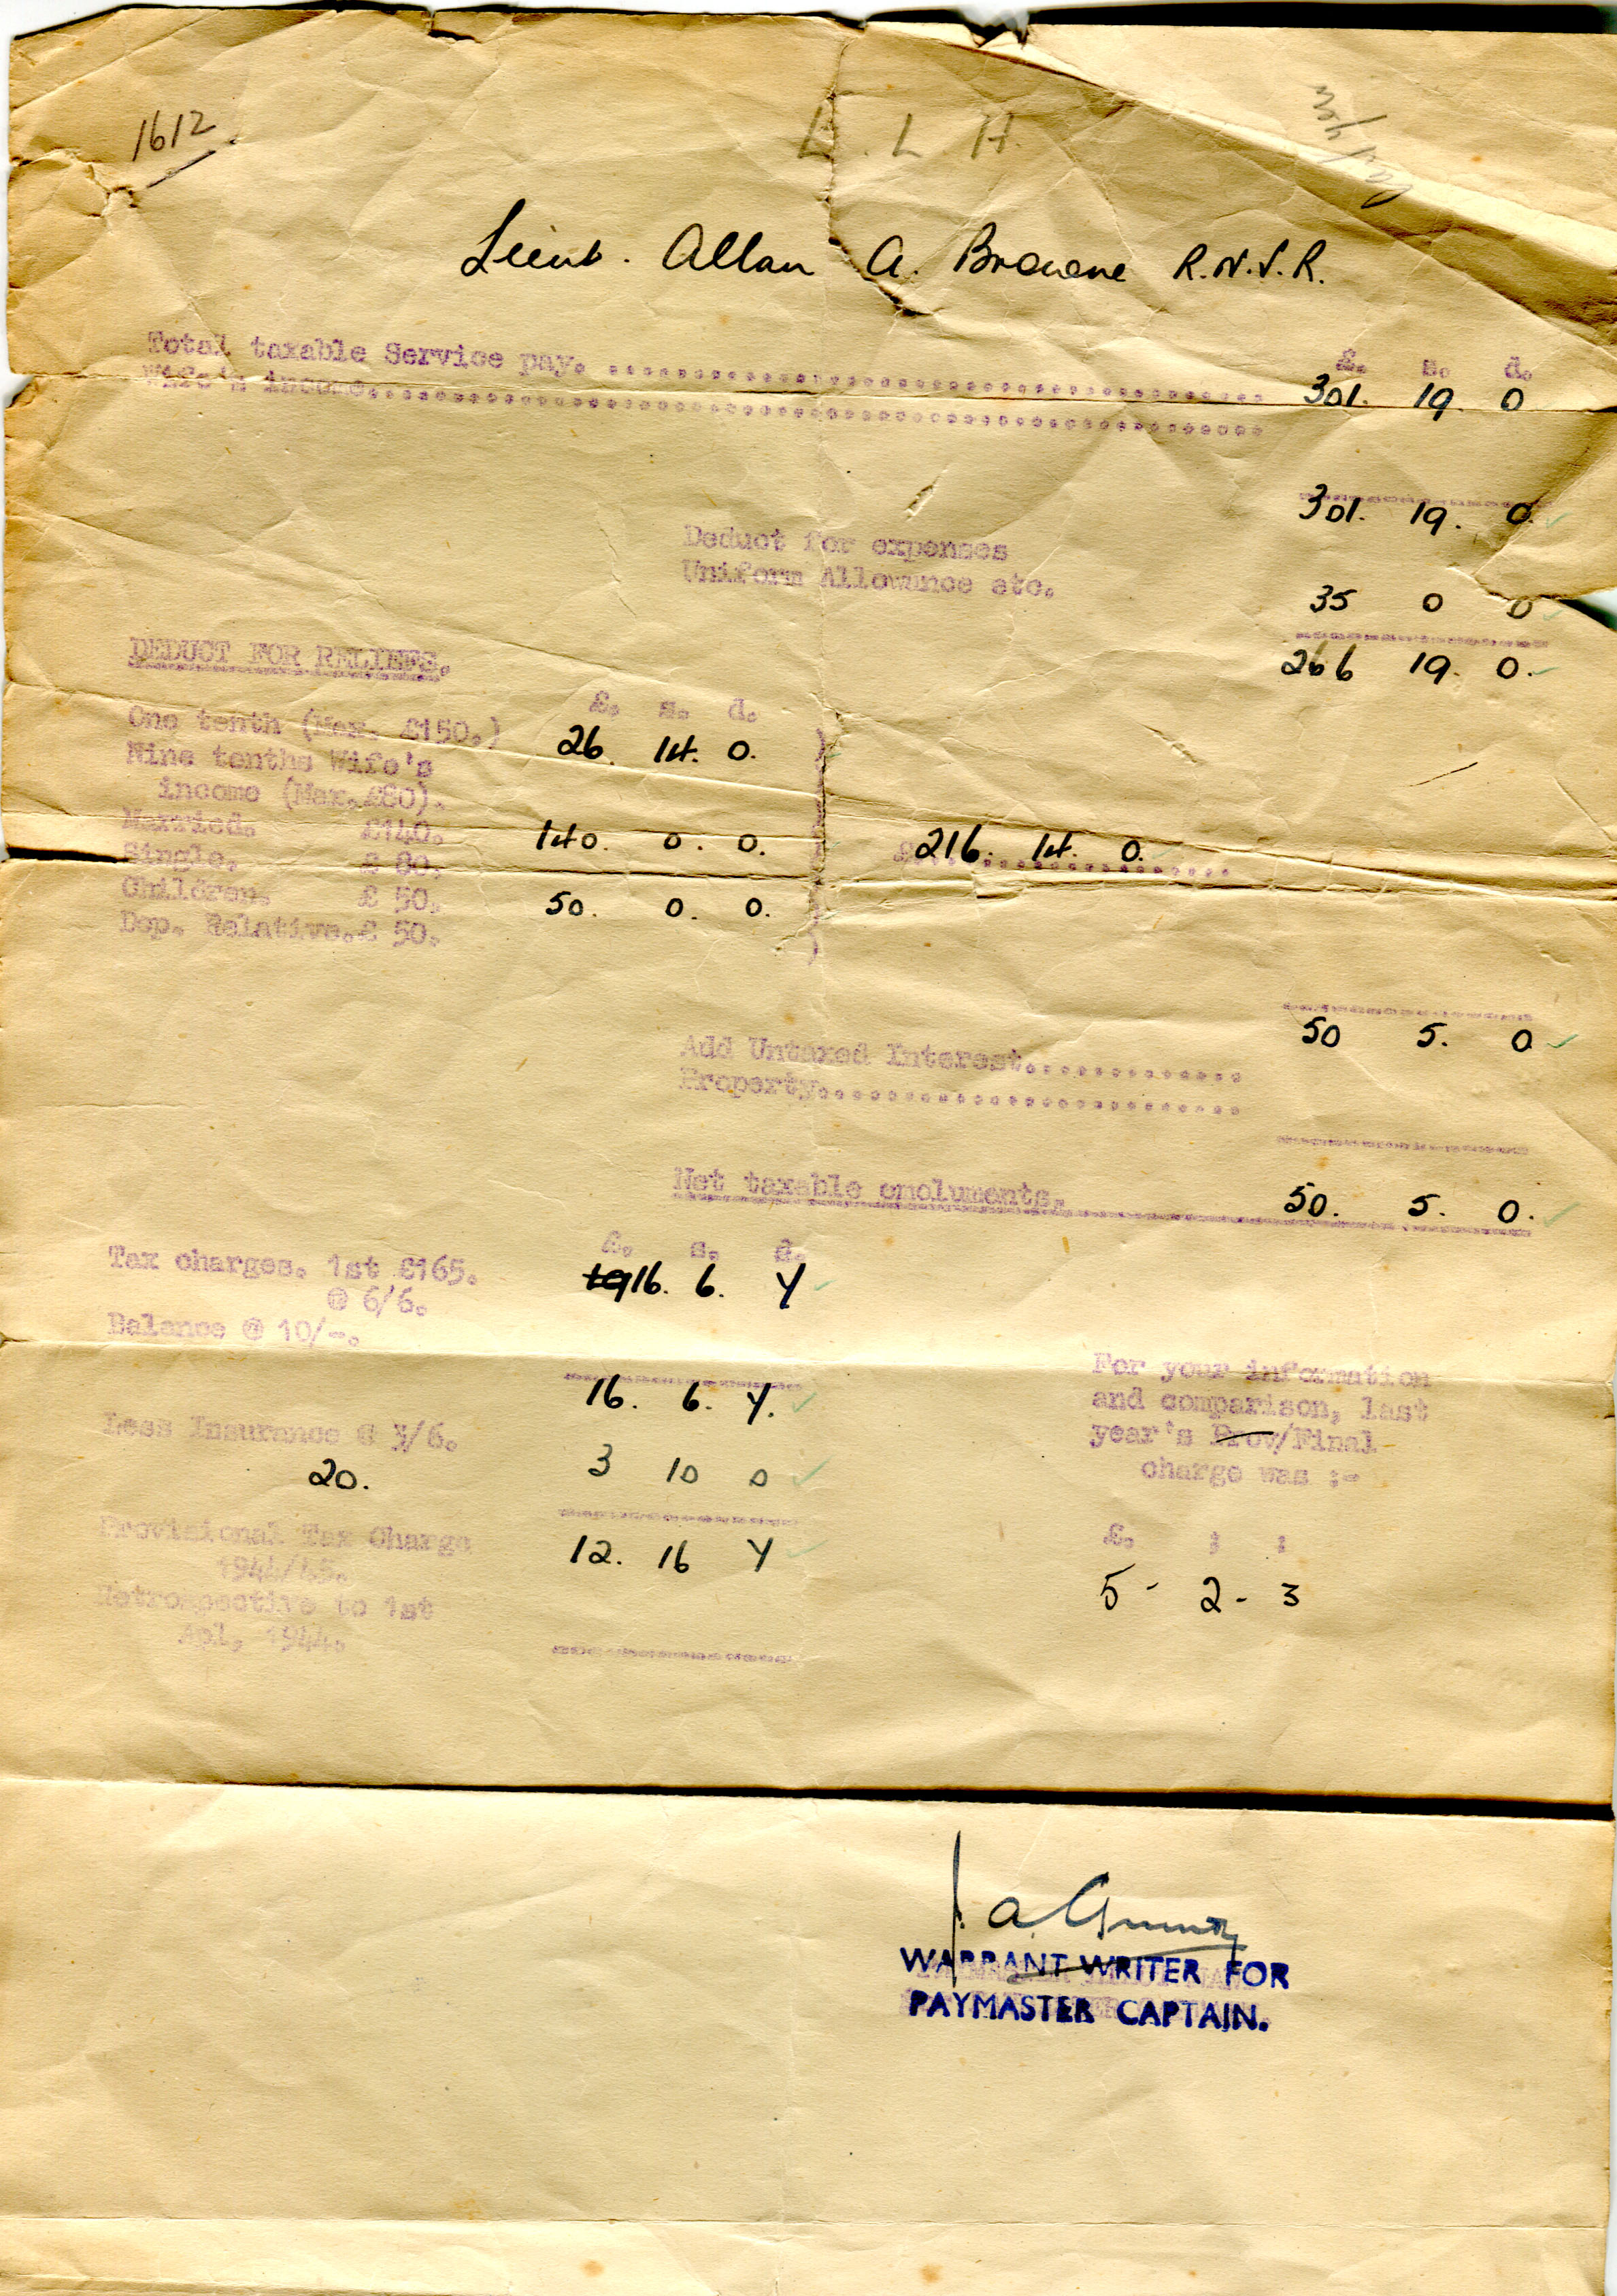 1612
L. L. H.
Lieut. Allan A. Browne R.N.V.R.
£. s. d.
Total taxable Service pay. ........ 301. 19. 0
Wife's income. ........
301. 19. 0.
Deduct for expenses
Uniform Allowance etc. 35 0 0
266 19. 0.
DEDUCT FOR RELIEFS.
£. s. d.
One tenth (Max. £150.) 26. 14. 0.
Nine tenths Wife's
income (Max. £80).
Married. £140. 140. 0. 0. £ 216. 14. 0.
Single. £ 80.
Children. £ 50. 50. 0. 0.
Dep. Relative. £ 50.
50 5. 0
Add Untaxed Interest.............
Property.........................
Net taxable emoluments. 50. 5. 0.
£. s. d.
Tax charges. 1st £165. 16. 6. 7
@ 6/6.
Balance @ 10/-.
16. 6. 7.
Less Insurance @ 3/6.
20. 3 10 0
Provisional Tax Charge 12. 16 7
1944/45.
Retrospective to 1st
Apl, 1944.
For your information
and comparison, last
year's Prov/Final
charge was :-
£. : :
5 - 2 - 3
WARRANT WRITER FOR
PAYMASTER CAPTAIN.